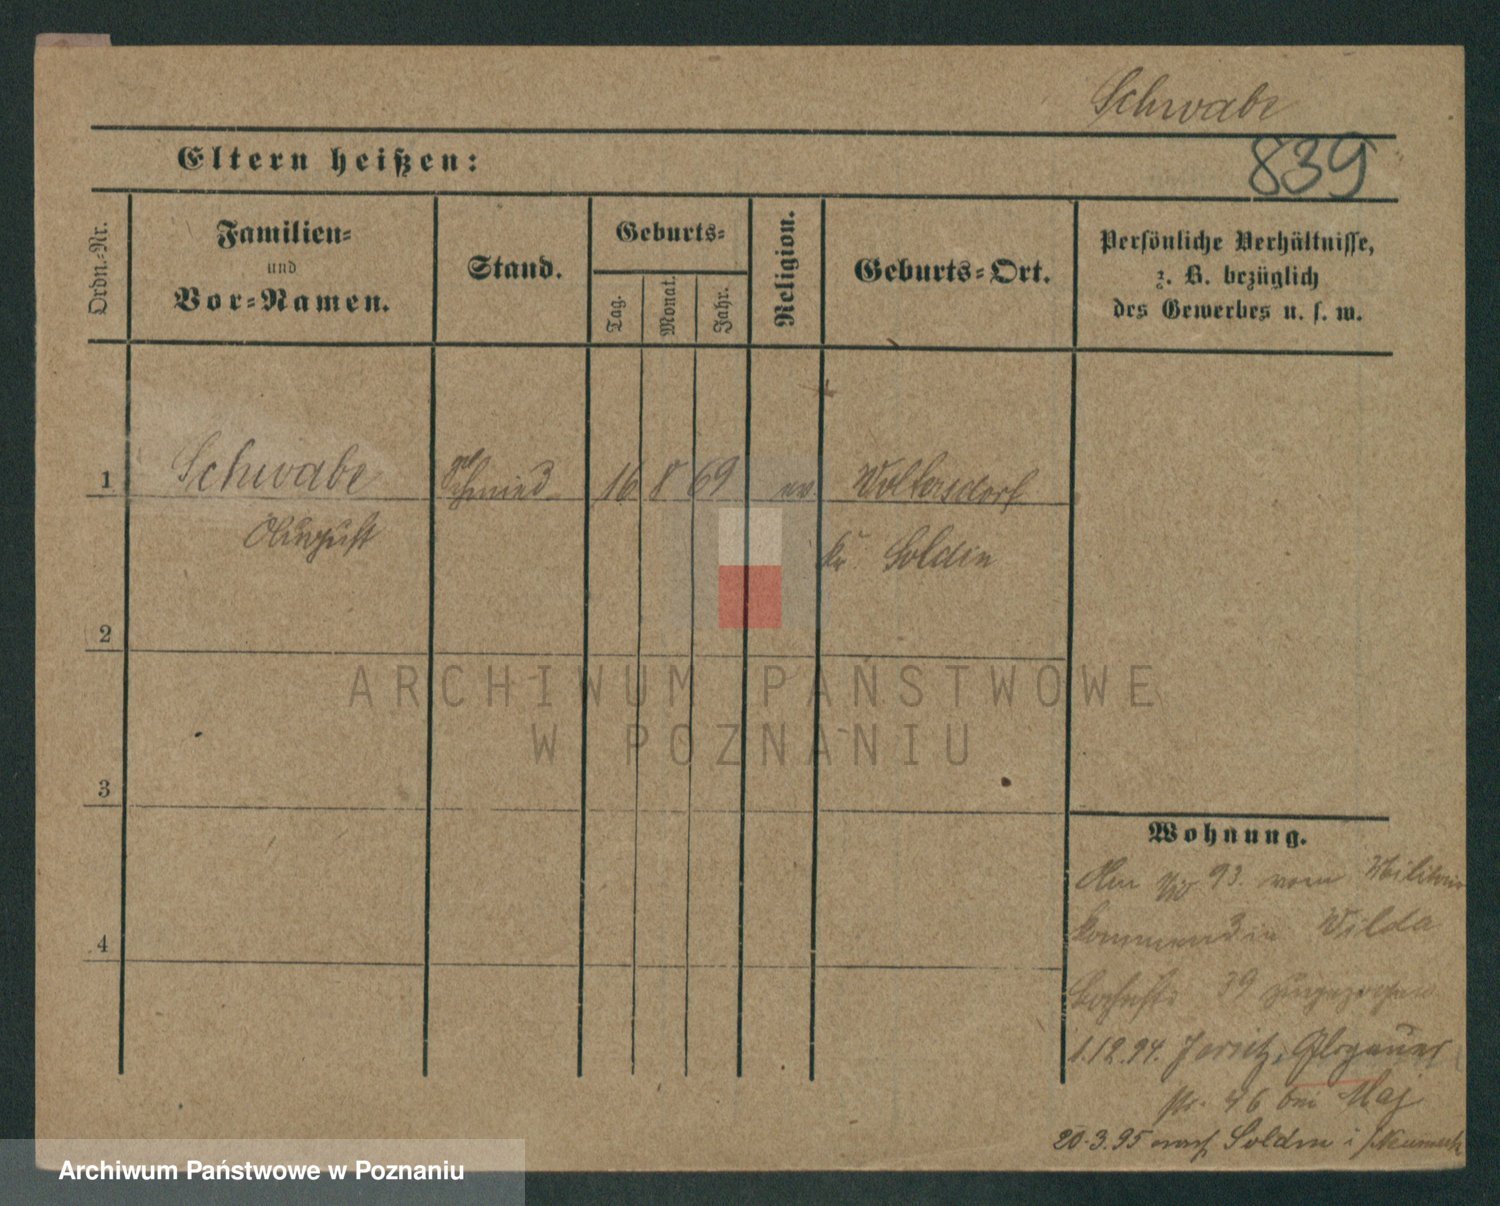 Schwabe
Eltern heißen:
839
Ordn.-Nr.
Familien-
und
Vor-Namen.
Stand.
Geburts-
Tag.
Monat.
Jahr.
Religion.
Geburts-Ort.
Persönliche Verhältnisse,
z. B. bezüglich
des Gewerbes u. s. w.
1
Schwabe
Schmied
16 8 69
ev.
Woltersdorf
August
Kr Soldin
2
ARCHIWUM PAŃSTWOWE
W POZNANIU
3
Wohnung.
4
93. vom Militair
Kommando in Wilda
39 zugezogen
1.12.94. Jersitz, Glogauer
str. 46 bei Maj
20.3.95 nach Soldin i Neumark
Archiwum Państwowe w Poznaniu